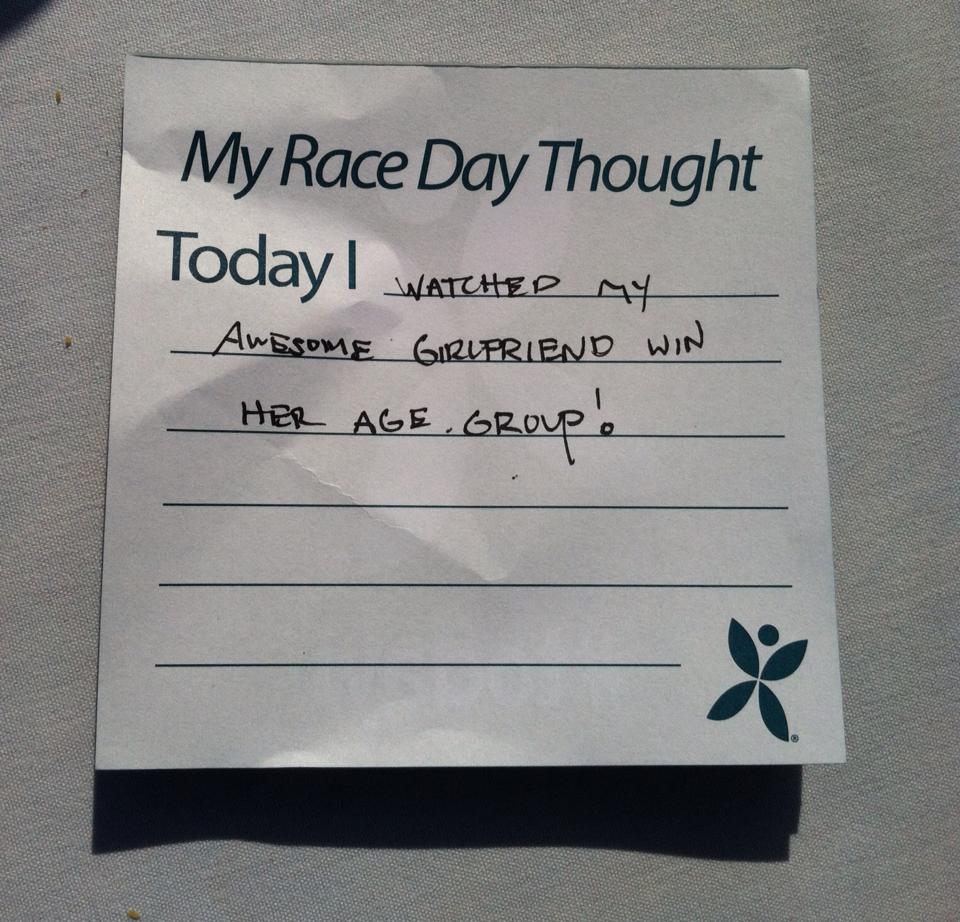 My Race Day Thought
Today I WATCHED MY
AWESOME GIRLFRIEND WIN
HER AGE. GROUP!
®